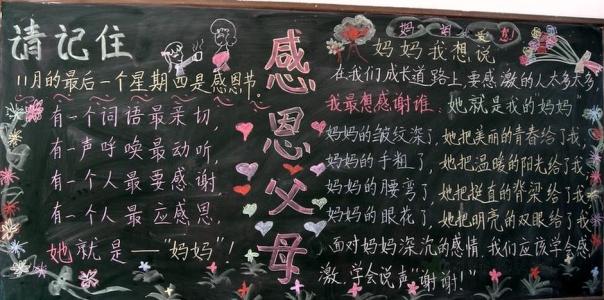 请记住
11月的最后一个星期四是感恩节。
有一个词语最亲切,
有一声呼唤最动听,
有一个人最要感谢,
有一个人最应感恩,
她就是——"妈妈"!
感恩父母
妈妈我想说
在我们成长道路上要感激的人太多太多
我最想感谢谁:她就是我的"妈妈
妈妈的皱纹深了,她把美丽的青春给了我,
妈妈的手粗了,她把温暖的阳光给了我,
妈妈的腰弯了,她把挺直的脊梁给了我,
妈妈的眼花了,她把明亮的双眼给了我,
面对妈妈深沉的感情,我们应该学会感
激,学会说声"谢谢!"